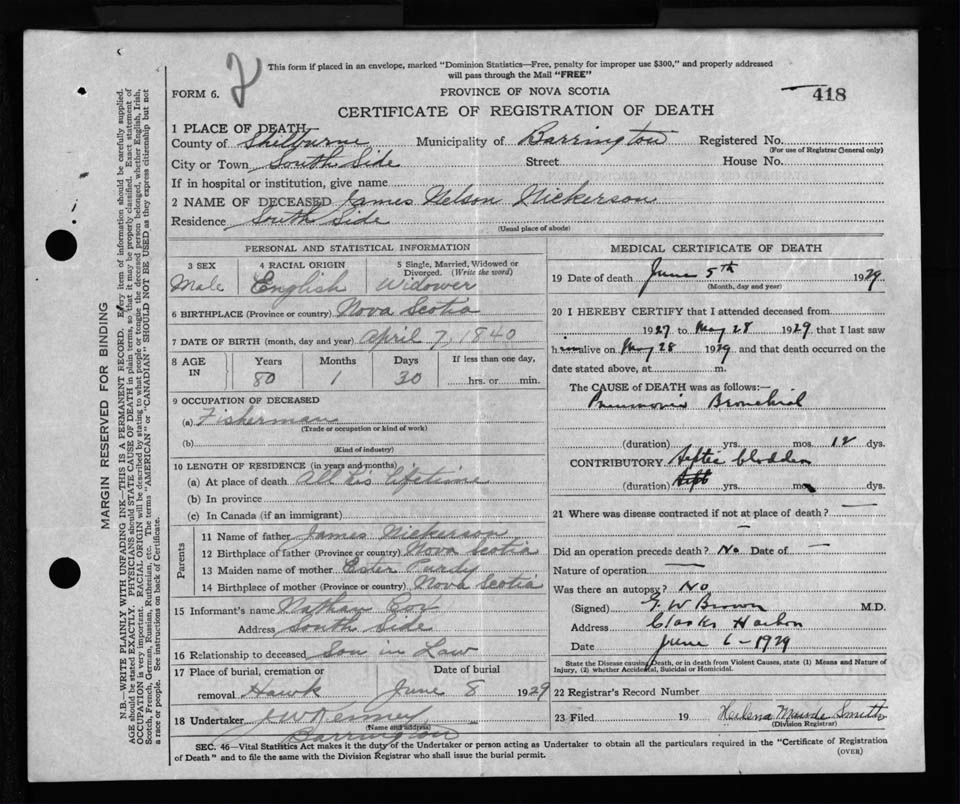 2
This form if placed in an envelope, marked "Dominion Statistics—Free, penalty for improper use $300," and properly addressed
will pass through the Mail "FREE"
FORM 6.
PROVINCE OF NOVA SCOTIA
418
CERTIFICATE OF REGISTRATION OF DEATH
1 PLACE OF DEATH
County of Shelburne Municipality of Barrington Registered No.
(For use of Registrar General only)
City or Town South Side Street House No.
If in hospital or institution, give name
2 NAME OF DECEASED James Nelson Nickerson
Residence South Side
(Usual place of abode)
PERSONAL AND STATISTICAL INFORMATION
3 SEX 4 RACIAL ORIGIN 5 Single, Married, Widowed or
Divorced. (Write the word)
Male English Widower
6 BIRTHPLACE (Province or country) Nova Scotia
7 DATE OF BIRTH (month, day and year) April 7, 1840
8 AGE IN Years Months Days If less than one day,
80 1 30 hrs. or min.
9 OCCUPATION OF DECEASED
(a) Fisherman
(Trade or occupation or kind of work)
(b)
(Kind of industry)
10 LENGTH OF RESIDENCE (in years and months)
(a) At place of death All his lifetime
(b) In province
(c) In Canada (if an immigrant)
Parents
11 Name of father James Nickerson
12 Birthplace of father (Province or country) Nova Scotia
13 Maiden name of mother Ester Purdy
14 Birthplace of mother (Province or country) Nova Scotia
15 Informant's name Nathan
Address South Side
16 Relationship to deceased Son in Law
17 Place of burial, cremation or Date of burial
removal Hawk June 8 1929
18 Undertaker J W Kenney
(Name and address)
Barrington
MEDICAL CERTIFICATE OF DEATH
19 Date of death June 5th 1929
(Month, day and year)
20 I HEREBY CERTIFY that I attended deceased from
1927 to May 28 1929, that I last saw
him alive on May 28 1929 and that death occurred on the
date stated above, at m.
The CAUSE of DEATH was as follows:—
Pneumonia Bronchial
(duration) yrs. mos. 12 dys.
CONTRIBUTORY Septic bladder
(duration) yrs. mos. dys.
21 Where was disease contracted if not at place of death? —
—
Did an operation precede death? No Date of —
Nature of operation —
Was there an autopsy? No
(Signed) G. W Brown M.D.
Address Clarks Harbor
Date June 6 - 1929
State the Disease causing Death, or in death from Violent Causes, state (1) Means and Nature of
Injury, (2) whether Accidental, Suicidal or Homicidal.
22 Registrar's Record Number
23 Filed 19 Helena Maude Smith
(Division Registrar)
SEC. 46—Vital Statistics Act makes it the duty of the Undertaker or person acting as Undertaker to obtain all the particulars required in the "Certificate of Registration
of Death" and to file the same with the Division Registrar who shall issue the burial permit.
(OVER)
MARGIN RESERVED FOR BINDING
N.B.—WRITE PLAINLY WITH UNFADING INK—THIS IS A PERMANENT RECORD. Every item of information should be carefully supplied.
AGE should be stated EXACTLY. PHYSICIANS should STATE CAUSE OF DEATH in plain terms, so that it may be properly classified. Exact statement of
OCCUPATION is very important. RACIAL ORIGIN will be described by stating to what people or tongue the deceased person belonged, whether English, Irish,
Scotch, French, German, Russian, Ruthenian, etc. The terms "AMERICAN" or "CANADIAN" SHOULD NOT BE USED as they express citizenship but not
a race or people. See instructions on back of Certificate.